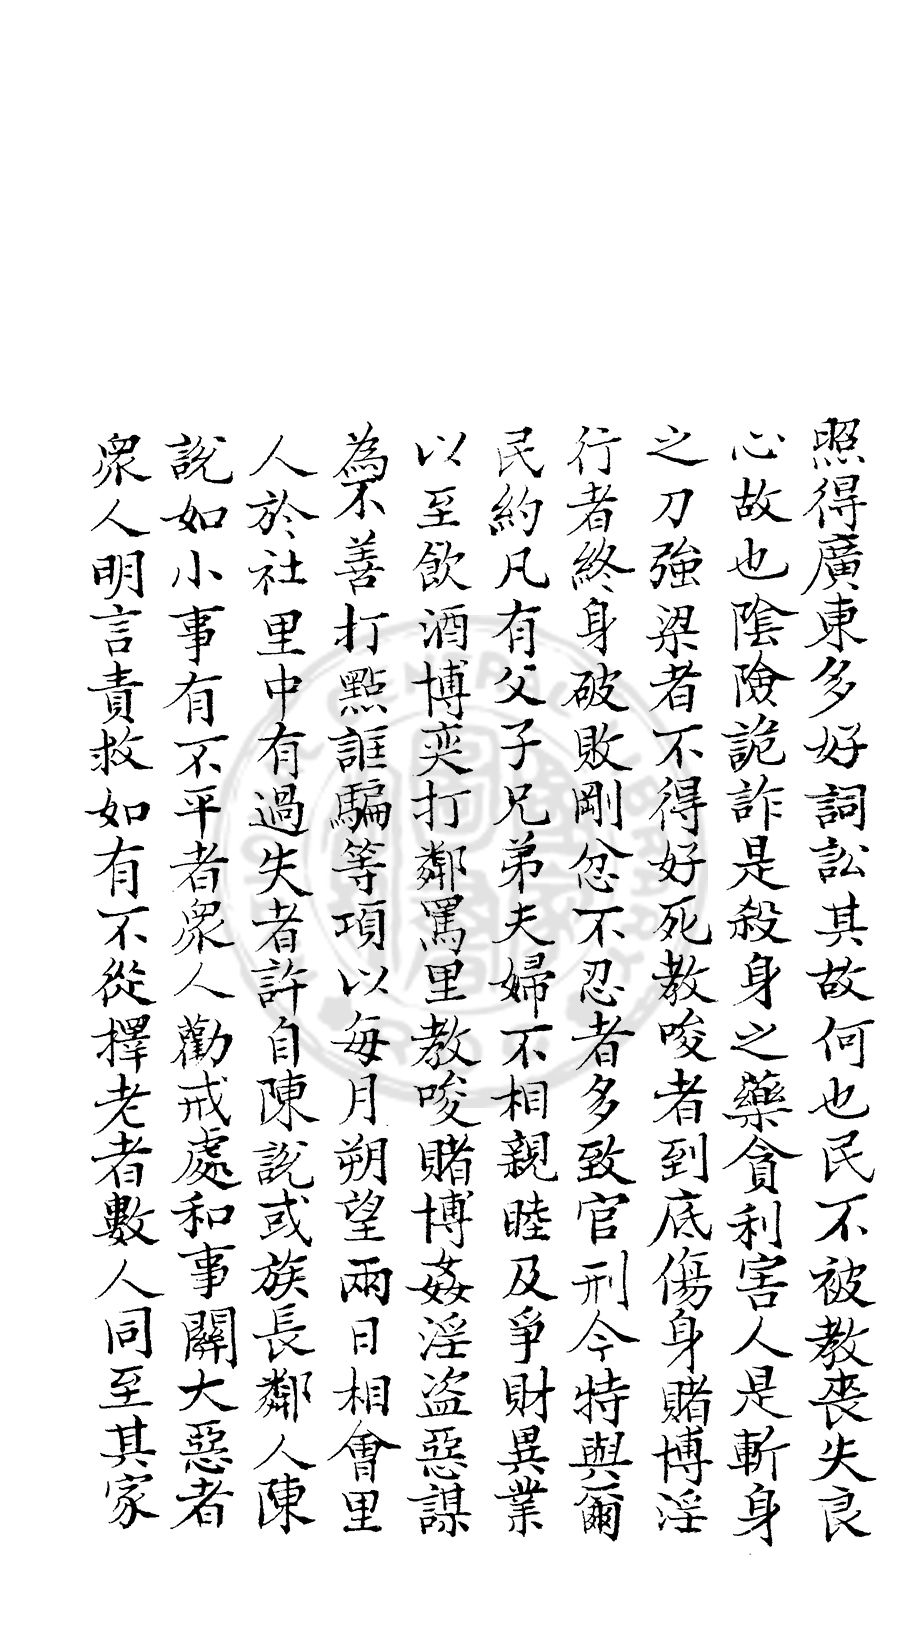 照得廣東多好詞訟其故何也民不被教喪失良
心故也陰險詭詐是殺身之藥貪利害人是斬身
之刀強梁者不得好死教唆者到底傷身賭博淫
行者終身破敗剛忿不忍者多致官刑今特與爾
民約凡有父子兄弟夫婦不相親睦及爭財異業
以至飲酒博奕打鄰罵里教唆賭博姦淫盜惡謀
為不善打點誆騙等項以每月朔望兩日相會里
人於社里中有過失者許自陳說或族長鄰人陳
說如小事有不平者眾人勸戒處和事關大惡者
眾人明言責救如有不從擇老者數人同至其家